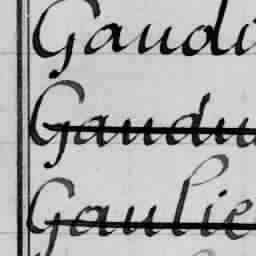 Gaudi
Gaudu
Gaulie